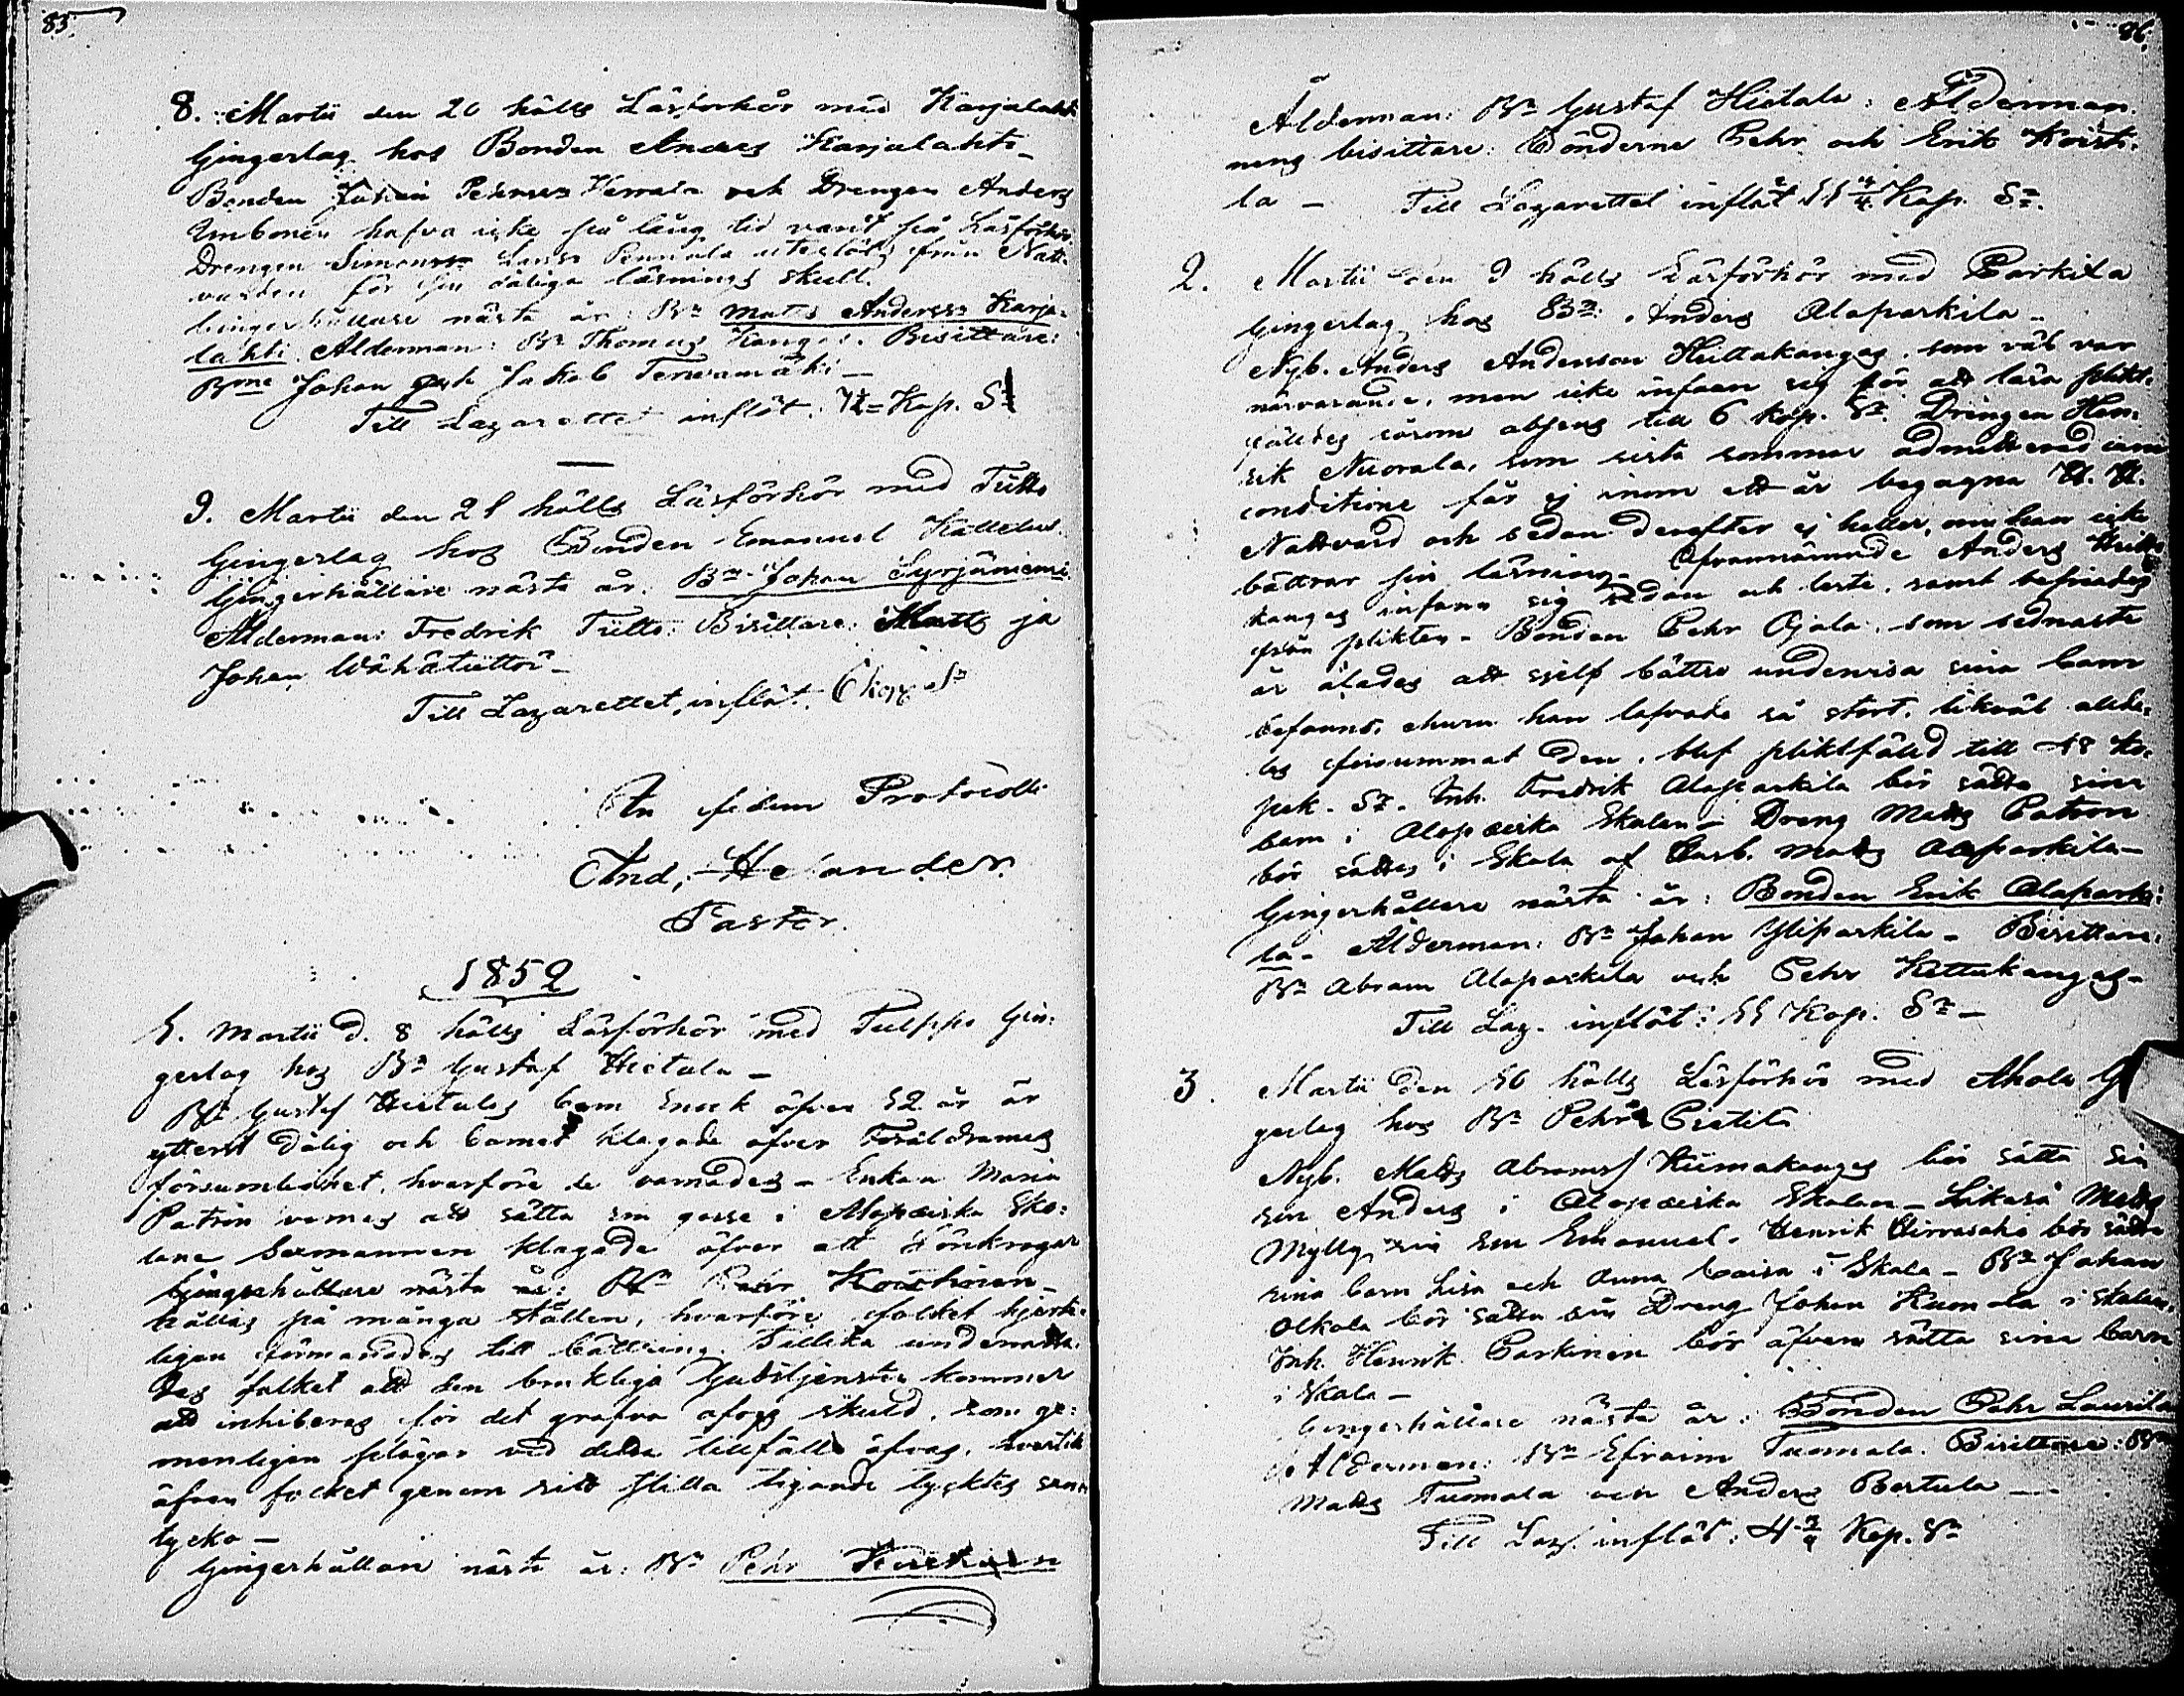 85.
8. Martii den 26 hölls Läsförhör med Karjalahti
Gingerlag hos Bonden Anders Karjalahti_
Bonden Johan Pehrsson och Drengen Anders
hafva icke på lång tid varit på Läsförhör
Drengen Simon Pennala uteslöts från Natt-
varden för sin dåliga läsnings skull.
Gingerhållare nästa år: Bn Matts Anderss. Karja-
lahti. Ålderman: Bn Thomas Kangas. Bisittare:
Bne Johan och Jakob Terwamäki_
Till Lazarettet inflöt: Kop. Sr
9. Martii den 28 hölls Läsförhör med Tütto
Gingerlag hos Bonden Emanuel
Gingerhållare nästa år: Bn Johan Syrjäniemi
Ålderman: Fredrik Tütto: Bisittare: Matts ja
Johan Wähätütto_
Till Lazarettet inflöt: 6 kop. Sr
In fidem Protocolli
And. Helander.
Pastor.
1852
1. Martii d. 8 hölls Läsförhör med Tulppo Gin-
gerlag hos Bn Gustaf Hietala_
Bn Gustaf Hietalas barn Enock öfver 12 år är
ytterst dålig och barnet klagade öfver Föräldrarnes
försumlighet, hvarföre de varnades_ Enkan Maria
Patron varnas att sätta sin gosse i Alapäiskä Sko-
lan. Sexmannen klagade öfver att Lönkrogar
Gingerhållare nästa år: Bn Pehr Koiskinen_
hållas på många ställen, hvarföre folket hjert-
ligen förmanades till bättring. Tillika underrätta-
des folket att den brukliga Gudstjensten kommer
att inhiberas för det grofva ofogs skuld, som ge-
menligen plägar vid detta tillfälle öfvas, hvartill
äfven folket genom sitt stilla tigande tycktes sam-
tycka_
Gingerhållare nästa år: Bn Pehr
86.
Ålderman: Bn Gustaf Hietala: Ålderman-
nens bisittare: Bönderne Pehr och Erik Koisti-
la _ Till Lazarettet inflöt 11 Kop. Sr.
2. Martii den 9 hölls Läsförhör med Parkila
Gingerlag hos Bn: Anders Alaparkila_
Nyb. Anders Andersson Huttukangas, som väl var
närvarande, men icke infann sig för att läsa plikt-
fälldes såsom absens till 6 kop. Sr. Drengen Hen-
rik Nuorala, som sista sommar admitterad cum
conditione får ej inom ett år begagna H. H.
Nattvard och sedan derefter ej heller, om han icke
bättrar sin läsning_ Ofvannämnde Anders Huttu-
kangas infann sig sedan och läste, samt befriades
från plikten_ Bonden Pehr Ojala, som sednaste
år ålades att sjelf bättre undervisa sina barn
befanns, ehuru han lofvade så stort, likväl allde-
les försummat den, blef pliktfälld till 48 Ko-
pek. Sr. Inh. Fredrik Alaparkila bör sätta sina
barn i Alapäiskä Skolan_ Dreng Matts Patron
bör sättas i Skola af Matts Alaparkila_
Gingerhållare nästa år: Bonden Erik Alaparki-
la_ Ålderman: Bn Johan Yliparkila_ Bisittare:
Bn Abram Alaparkila och Pehr Huttukangas_
Till Laz. inflöt: 11 Kop. Sr_
3. Martii den 10 hölls Läsförhör med Ahola G
gerlag hos Bn Pehr Pietilä
Nyb. Matts Abramss Kiimakangas bör sätta sin
son Anders i Alapäiskä Skolan_ Likaså Matts
Mylly sin son Emanuel. Henrik Hirvasoho bör sätta
sina barn Lisa och Anna Caisa i Skola_ Bn Johan
Alkula bör sätta sin Dreng Johan Kumala i skolan,
Inh. Henrik Parkinen bör äfven sätta sina barn
i Skola_
Gingerhållare nästa år: Bonden Pehr Laurila
Ålderman: Bn Efraim Tuomala. Bisittare: Bn
Matts Tuomala och Anders Bertula_
Till Laz. inflöt: 4 Kop. Sr